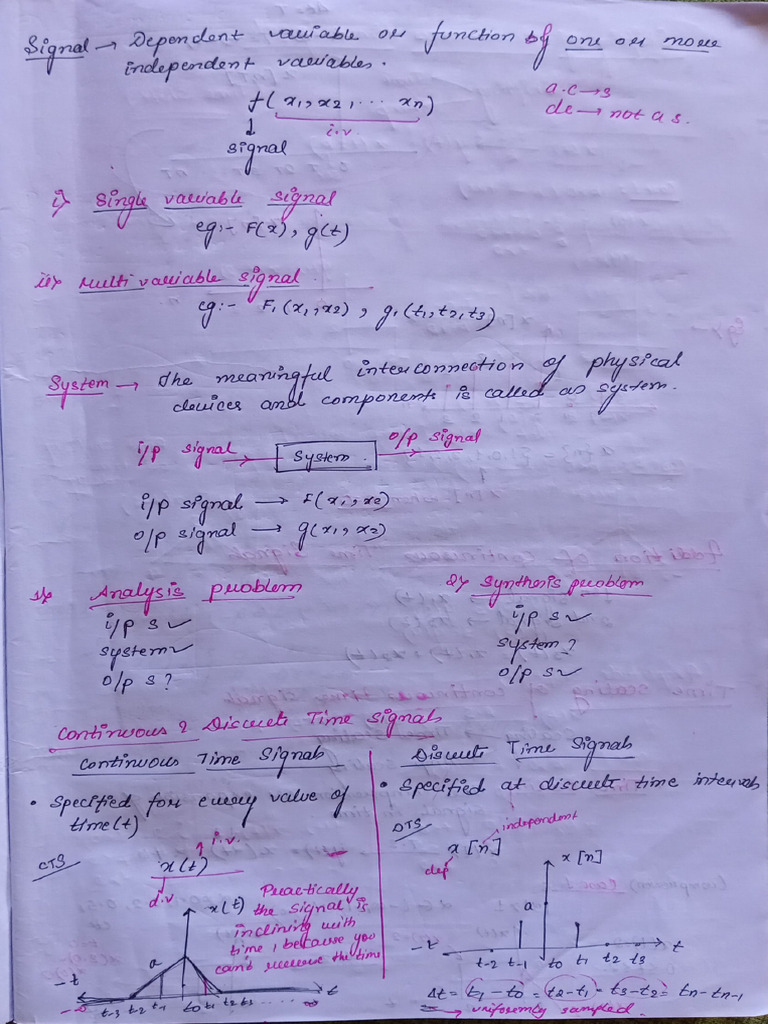 Signal → Dependent variable or function of one or more
independent variables.
f( x1, x2, ... xn)
i.v
↓
signal
a.c → s
dc → not a s.
i> Single variable signal
eg:- F(x), g(t)
ii> Multi variable signal
eg:- F1(x1,x2), g1(t1,t2,t3)
System → The meaningful interconnection of physical
devices and components is called as system.
i/p signal → System. → o/p signal
i/p signal → F(x1,x2)
o/p signal → g(x1,x2)
1> Analysis problem
i/p s ✓
system ✓
o/p s ?
2> Synthesis problem
i/p s ✓
system ?
o/p s ✓
Continuous & Discrete Time Signals
Continuous Time Signals
• Specified for every value of
time(t)
CTS
i.v.
x(t)
d.v
x(t)
Practically
the signal is
inclining with
time, because you
can't reverse the time
a
-t
t
-∞ t-3 t-2 t-1 t0 t1 t2 t3 ... ∞
Discrete Time Signals
• Specified at discrete time intervals
DTS
independent
x [n]
dep
x [n]
a
-t t-2 t-1 t0 t1 t2 t3 t
Δt = t1 - t0 = t2 - t1 = t3 - t2 = tn - tn-1
⇒ uniformly sampled.